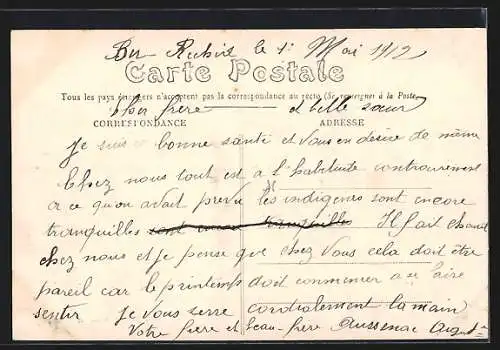 Bu Rechid le 1r Mai 1912
Carte Postale
Tous les pays étrangers n'acceptent pas la correspondance au recto (Se renseigner à la Poste)
Cher frère et belle sœur
CORRESPONDANCE ADRESSE
Je suis bonne santé et Vous en désire de même
Chez nous tout est a l'habitude contrairement
a ce qu'on avait prevu les indigenes sont encore
tranquilles sont encore tranquilles Il fait chaud
chez nous et je pense que chez Vous cela doit être
pareil car le printemps doit commencer a se faire
sentir Je Vous serre cordialement la main
Votre frère et beau-frère Aussenac Aug